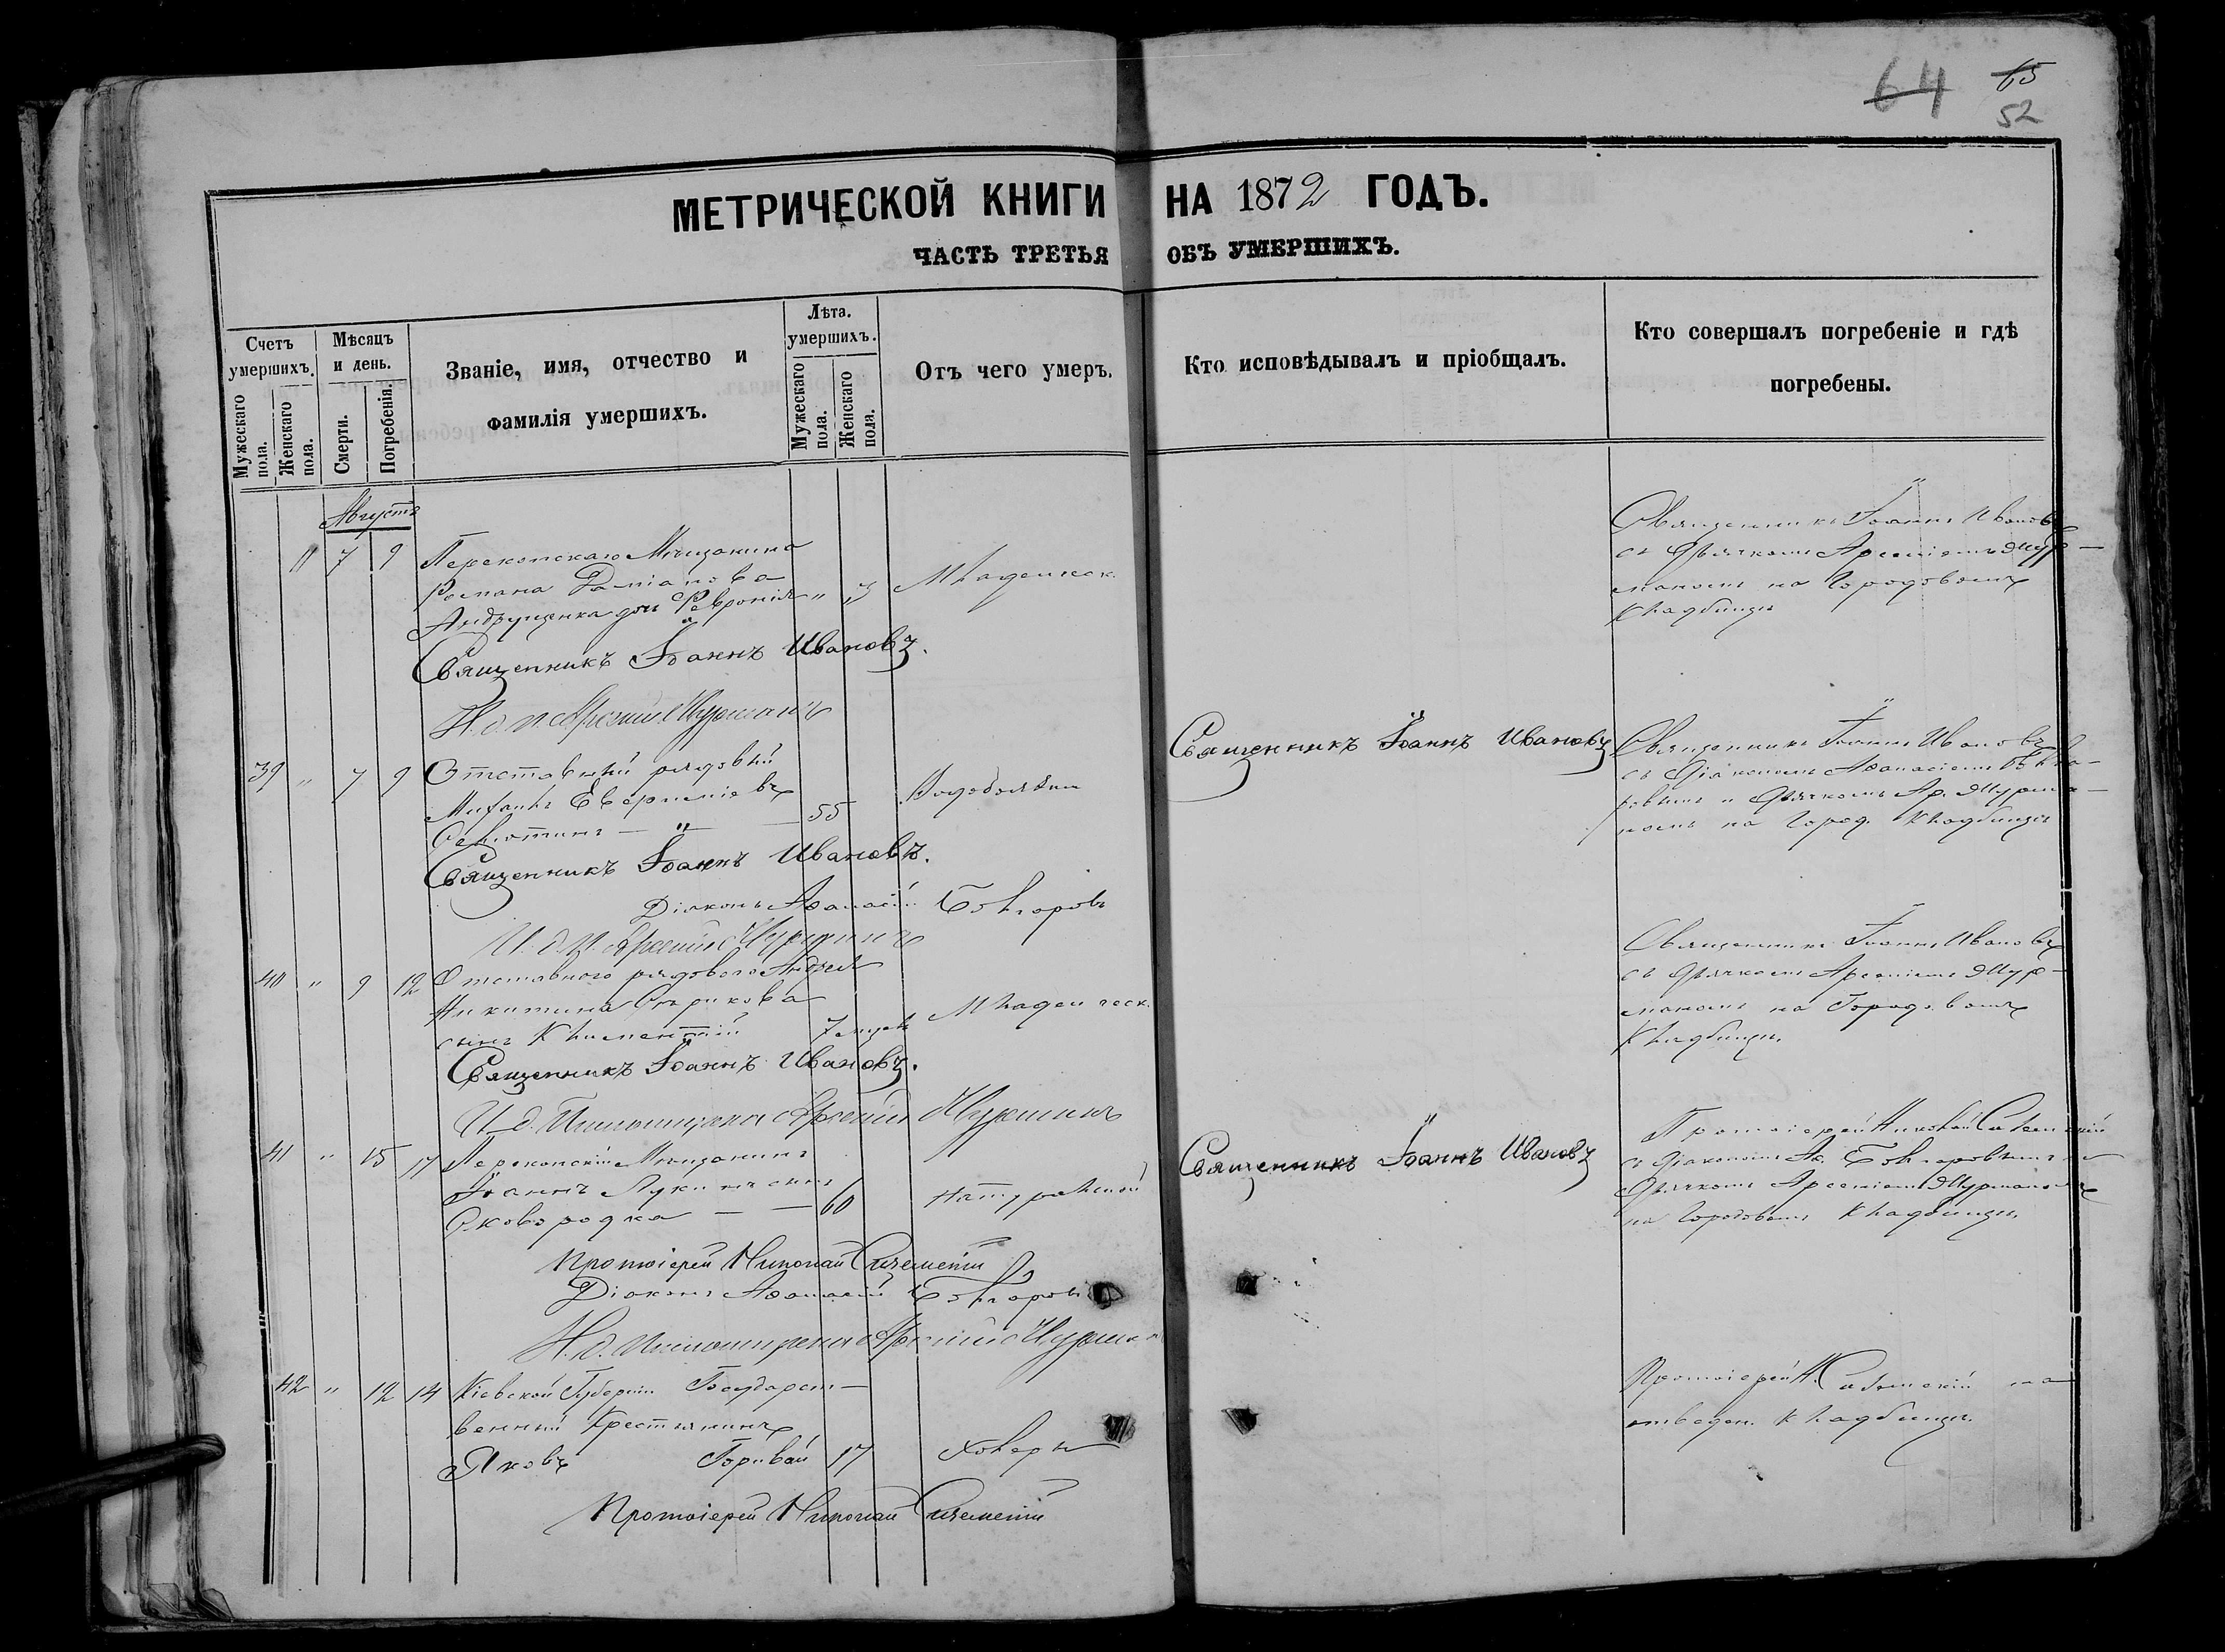 64 65
52
МЕТРИЧЕСКОЙ КНИГИ НА 1872 ГОДЪ.
ЧАСТЬ ТРЕТЬЯ ОБЪ УМЕРШИХЪ.
Счетъ умершихъ.
Мужескаго пола.
Женскаго пола.
Мѣсяцъ и день.
Смерти.
Погребенія.
Званіе, имя, отчество и
фамилія умершихъ.
Лѣта. умершихъ.
Мужескаго пола.
Женскаго пола.
Отъ чего умеръ.
Кто исповѣдывалъ и пріобщалъ.
Кто совершалъ погребеніе и гдѣ
погребены.
Августъ
11 7 9 Перекопскаго Мѣщанина
Романа
Андрущенка дочь Февронія " 3 Младенческ.
Священникъ Іоаннъ Ивановъ
съ Дьячкомъ Арсеніемъ Мур-
маномъ на Городовомъ
Кладбищѣ
Священникъ Іоаннъ Ивановъ.
И. д. п. Арсеній Мурманъ
39 " 7 9 Отставный рядовый
Михаилъ
55 Водоболѣзни
Священникъ Іоаннъ Ивановъ
Священникъ Іоаннъ Ивановъ
съ Діакономъ Аѳанасіемъ Болга-
ровымъ и Дьячкомъ Ар. Мурма-
номъ на Город. Кладбищѣ
Священникъ Іоаннъ Ивановъ.
Діаконъ Аѳанасій Болгаровъ
И. д. п. Арсеній Мурманъ
40 " 9 12 Отставного рядового Андрея
Никитина
сынъ Климентій 7 мѣсяц Младенческ.
Священникъ Іоаннъ Ивановъ
съ Дьячкомъ Арсеніемъ Мур-
маномъ на Городовомъ
Кладбищѣ
Священникъ Іоаннъ Ивановъ.
И. д. Псаломщика Арсеній Мурманъ
41 " 15 17 Перекопскій Мѣщанинъ
Іоаннъ Лукинъ сынъ
Сковородка 60 Натуральной
Священникъ Іоаннъ Ивановъ
Протоіерей Николай
съ Діакономъ Аѳ. Болгаровымъ и
Дьячкомъ Арсеніемъ Мурманомъ
на Городовомъ Кладбищѣ
Протоіерей Николай
Діаконъ Аѳанасій Болгаровъ
И. д. Псаломщика Арсеній Мурман
42 " 12 14 Кіевской Губерніи Государст-
венный Крестьянинъ
Яковъ 17 Холеры
Протоіерей Н. на
отведен. Кладбищѣ.
Протоіерей Николай